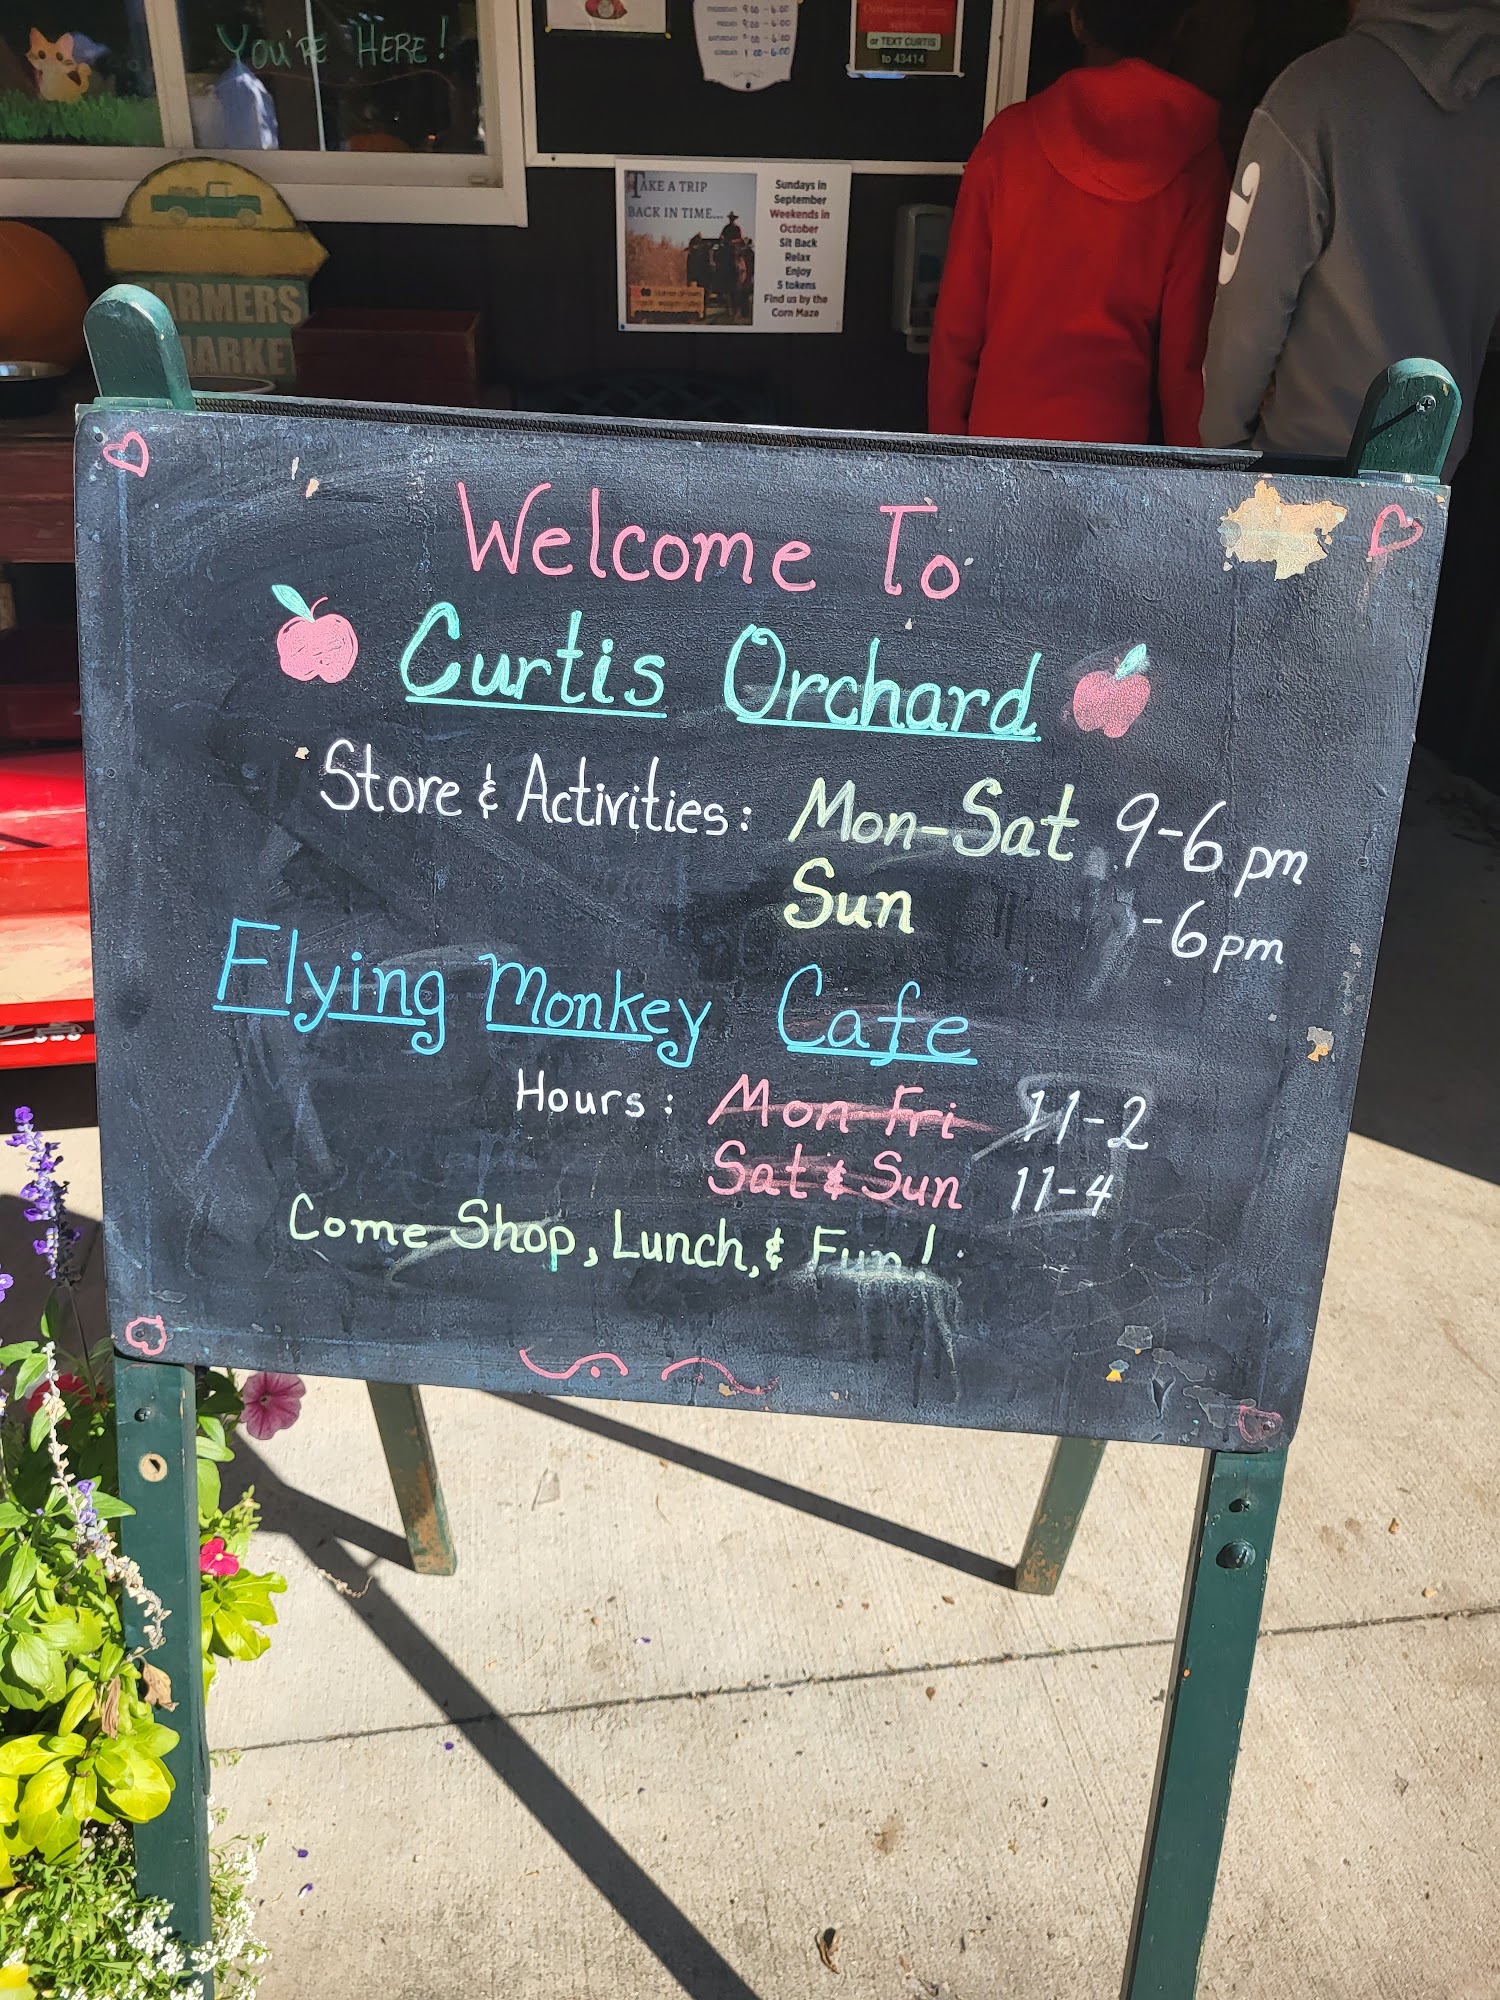 YOU'RE HERE!
9:00 - 6:00
or TEXT CURTIS
to 43414
TAKE A TRIP
BACK IN TIME...
Sundays in
September
Weekends in
October
Sit Back
Relax
Enjoy
5 tokens
Find us by the
Corn Maze
FARMERS
MARKET
Welcome To
Curtis Orchard
Store & Activities: Mon-Sat 9-6 pm
Sun -6 pm
Flying Monkey Cafe
Hours: Mon-Fri 11-2
Sat & Sun 11-4
Come Shop, Lunch, & Fun!